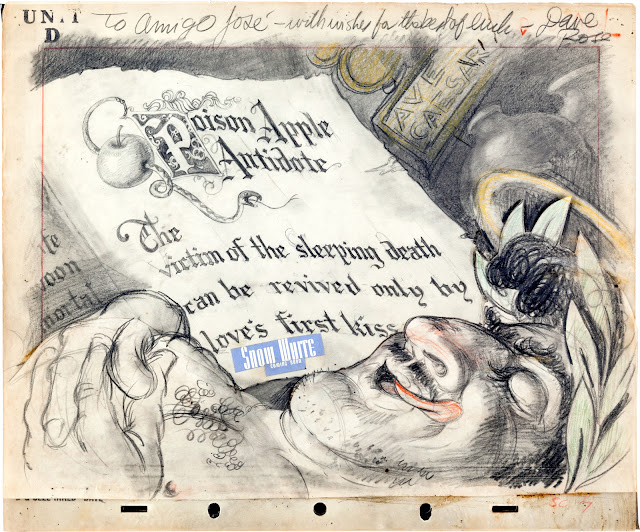 UN.T
D
To Amigo José - with wishes for the best of luck - Dave
Rose
AVE
CAESAR!
Poison Apple
Antidote
The
victim of the sleeping death
can be revived only by
love's first kiss
SNOW WHITE
COMING SOON
te
oon
mortal
50